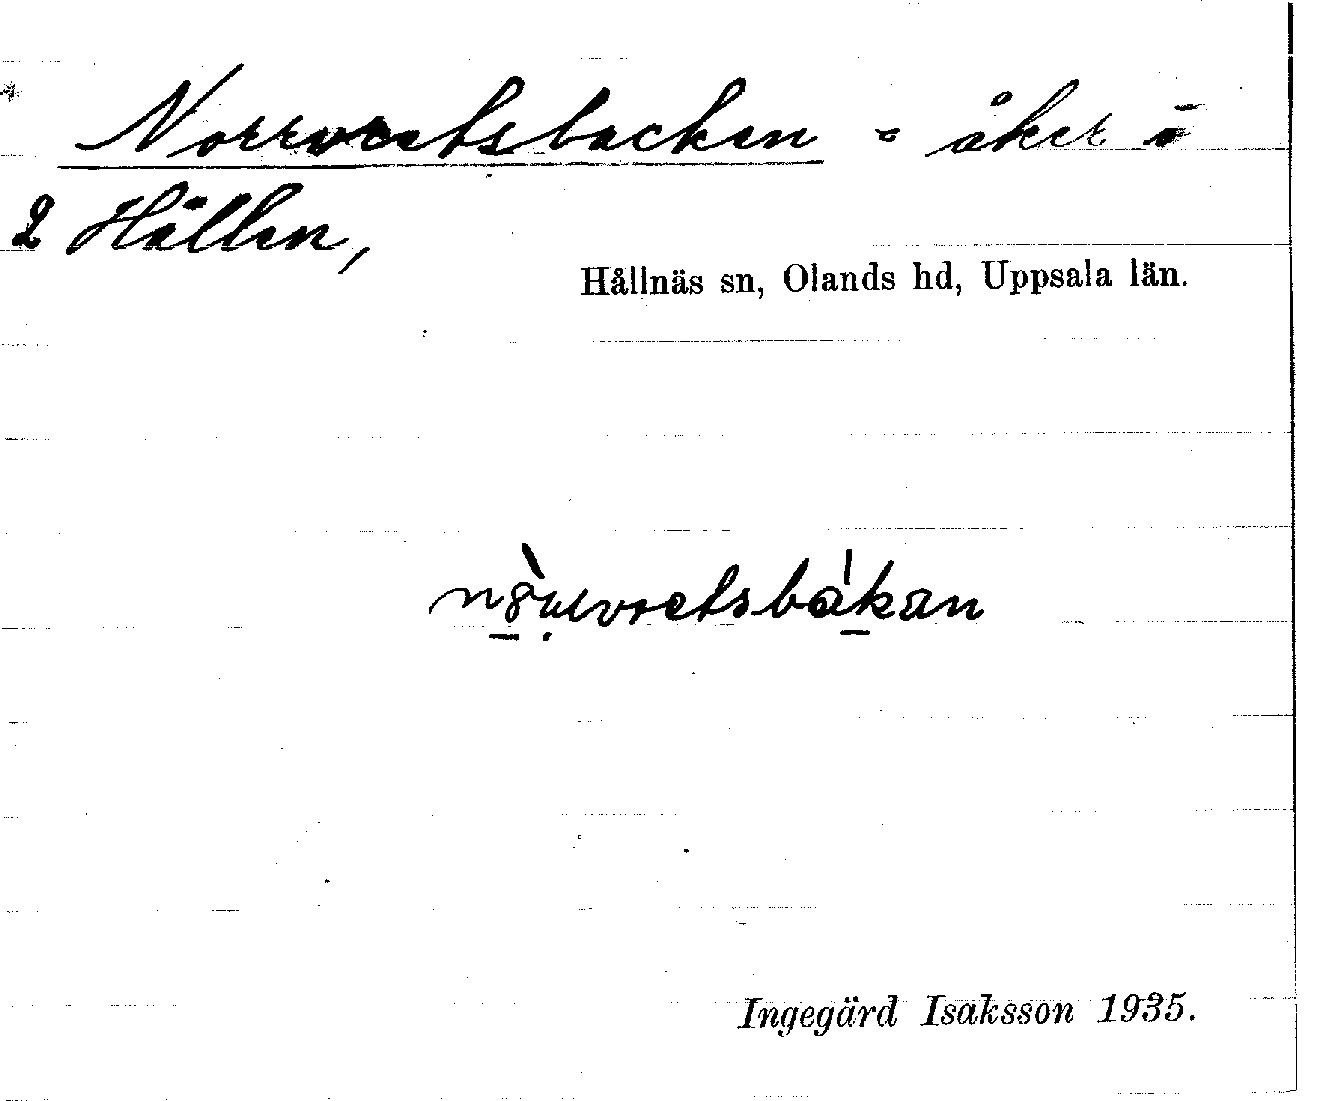 Norrvretsbacken = åker ö
2 Hällen,
Hållnäs sn, Olands hd, Uppsala län.
Ingegärd Isaksson 1935.